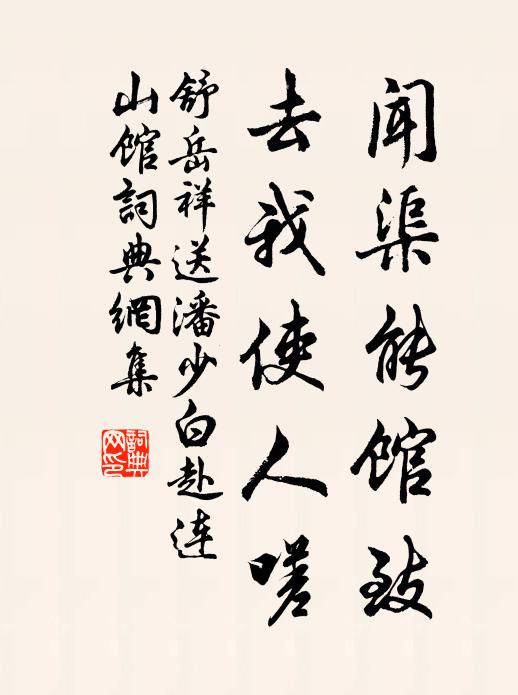 闻渠能馆致
去我使人嗟
舒岳祥送潘少白赴连
山馆詞典網集
詞典
网印